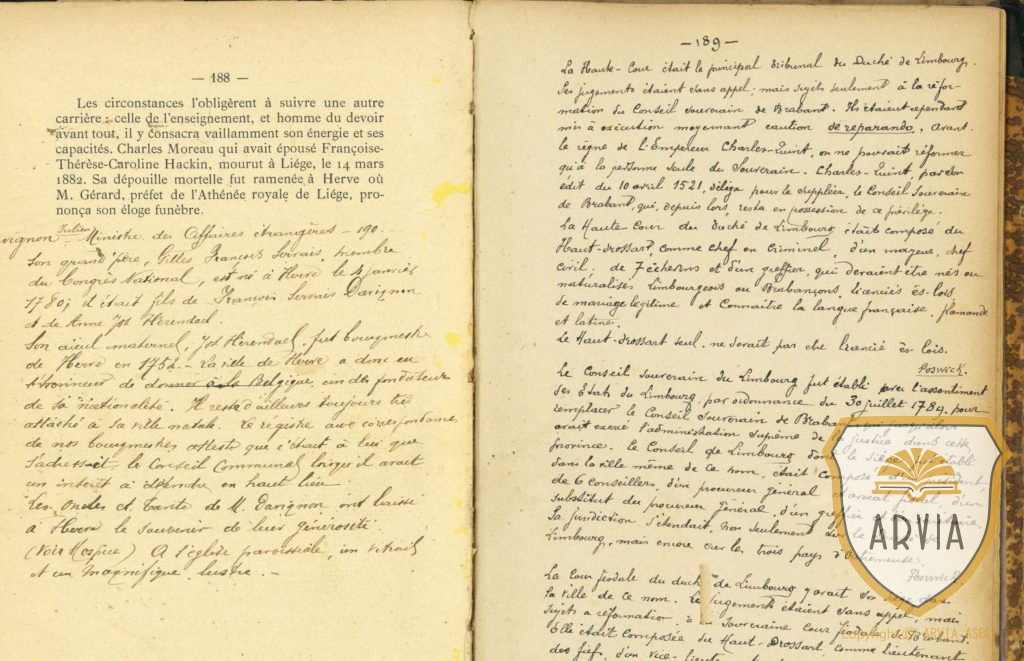 — 188 —
Les circonstances l'obligèrent à suivre une autre
carrière : celle de l'enseignement, et homme du devoir
avant tout, il y consacra vaillamment son énergie et ses
capacités. Charles Moreau qui avait épousé Françoise-
Thérèse-Caroline Hackin, mourut à Liége, le 14 mars
1882. Sa dépouille mortelle fut ramenée à Herve où
M. Gérard, préfet de l'Athénée royale de Liége, pro-
nonça son éloge funèbre.
vignon Julien Ministre des Affaires étrangères — 190.
Son grand'père, Gilles François Servais, membre
du Congrès National, est né à Herve le 4 janvier
1780; il était fils de François Servais Davignon
et de Anne Jos Herendael.
Son aïeul maternel, Jos Herendael, fut bourgmestre
de Herve en 1754. — La ville de Herve a donc eu
l'honneur de donner à la Belgique, un des fondateurs
de sa nationalité. Il resta d'ailleurs toujours très
attaché à sa ville natale. Le registre aux correspondances
de nos bourgmestres atteste que c'était à lui que
s'adressait le Conseil Communal lorsqu'il avait
un intérêt à défendre en haut lieu
Les Oncles et Tante de M. Davignon ont laissé
à Herve le souvenir de leur générosité
(Voir Hospice) A l'église paroissiale, un vitrail
et un magnifique lustre. —
— 189 —
La Haute-Cour était le principal tribunal du Duché de Limbourg.
Ses jugements étaient sans appel; mais sujets seulement à la réfor-
mation du Conseil souverain de Brabant. Ils étaient cependant
mis à exécution moyennant caution de reparando. Avant
le règne de l'Empereur Charles-Quint, on ne pouvait réformer
qu'à la personne seule du Souverain. Charles-Quint, par son
édit du 10 avril 1521, délégua pour le suppléer, le Conseil Souverain
de Brabant, qui, depuis lors, resta en possession de ce privilège.
La Haute Cour du Duché de Limbourg était composée du
Haut-Drossart, comme chef en Criminel, d'un mayeur, chef
Civil; de 7 échevins et d'un greffier, qui devaient être nés ou
naturalisés Limbourgeois ou Brabançons, licenciés ès-lois
de mariage légitime et connaître la langue française, flamande
et latine.
Le Haut-Drossart seul ne devait pas être licencié ès-lois.
Poswick.
Le Conseil Souverain du Limbourg fut établi avec l'assentiment
des Etats du Limbourg par ordonnance du 30 juillet 1789, pour
remplacer le Conseil Souverain de Brabant, qui jusqu'alors
avait exercé l'administration suprême de la justice dans cette
province. Le Conseil de Limbourg dont le siège établi
dans la ville même de ce nom, était composé d'un président,
de 6 Conseillers, d'un procureur général et avocat fiscal, d'un
substitut du procureur général, d'un greffier
Sa juridiction s'étendait, non seulement sur le
Limbourg, mais encore sur les trois pays d'Outremeuse.
Poswick.
La Cour féodale du duché de Limbourg y avait son siège dans
la ville de ce nom. Les jugements étaient sans appel, mais
sujets à réformation à la Souveraine Cour féodale de Brabant.
Elle était composée du Haut-Drossart comme lieutenant
des fiefs, d'un Vice-lieutenant
ARVIA
Copyright ARVIA ASBL